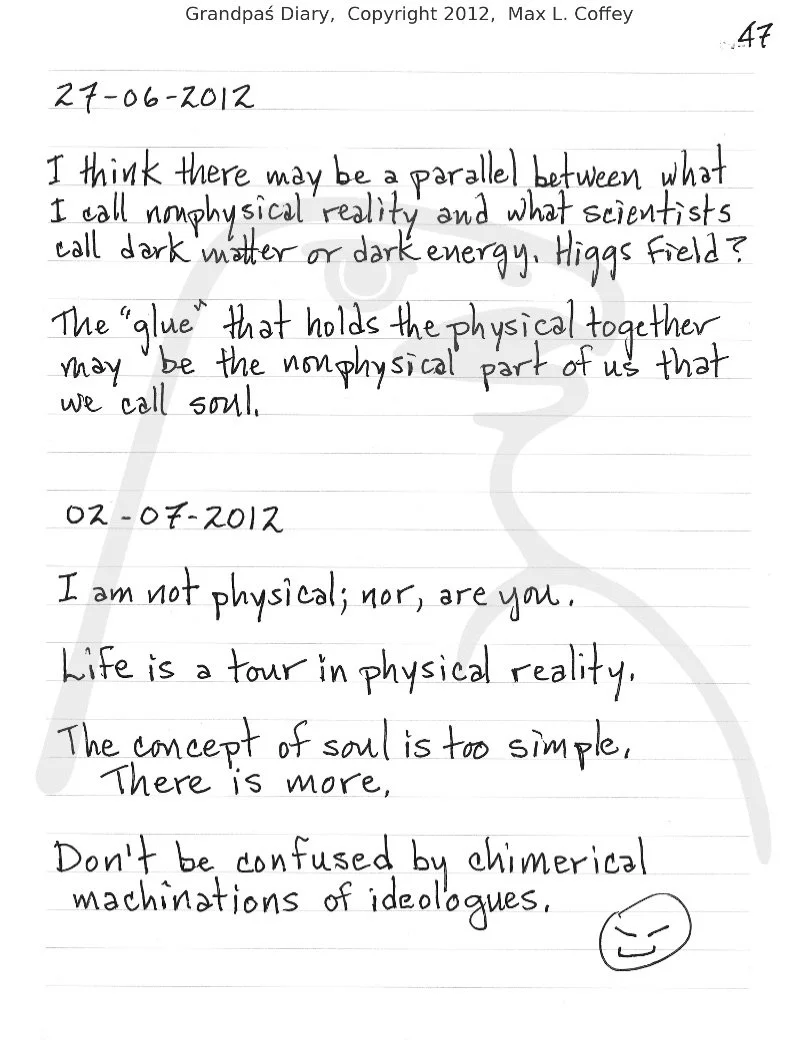 Grandpaś Diary, Copyright 2012, Max L. Coffey
47
27-06-2012
I think there may be a parallel between what
I call nonphysical reality and what scientists
call dark matter or dark energy. Higgs Field?
The "glue" that holds the physical together
may be the nonphysical part of us that
we call soul.
02-07-2012
I am not physical; nor, are you.
Life is a tour in physical reality.
The concept of soul is too simple.
There is more.
Don't be confused by chimerical
machinations of ideologues.